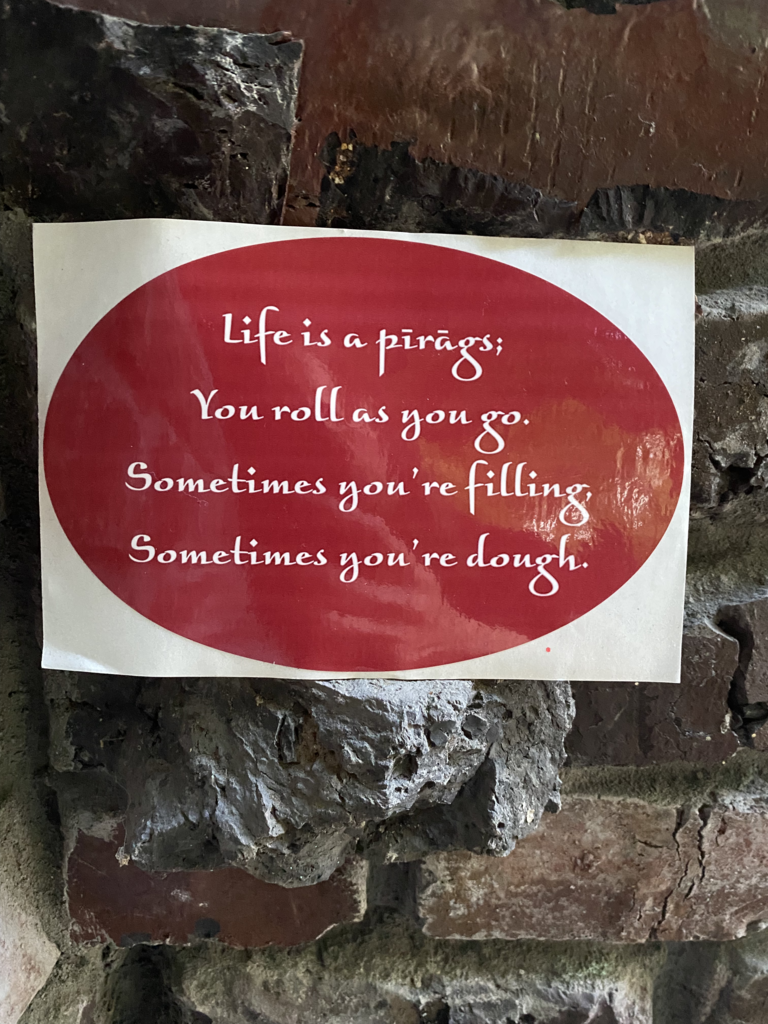 Life is a pīrāgs;
You roll as you go.
Sometimes you're filling,
Sometimes you're dough.